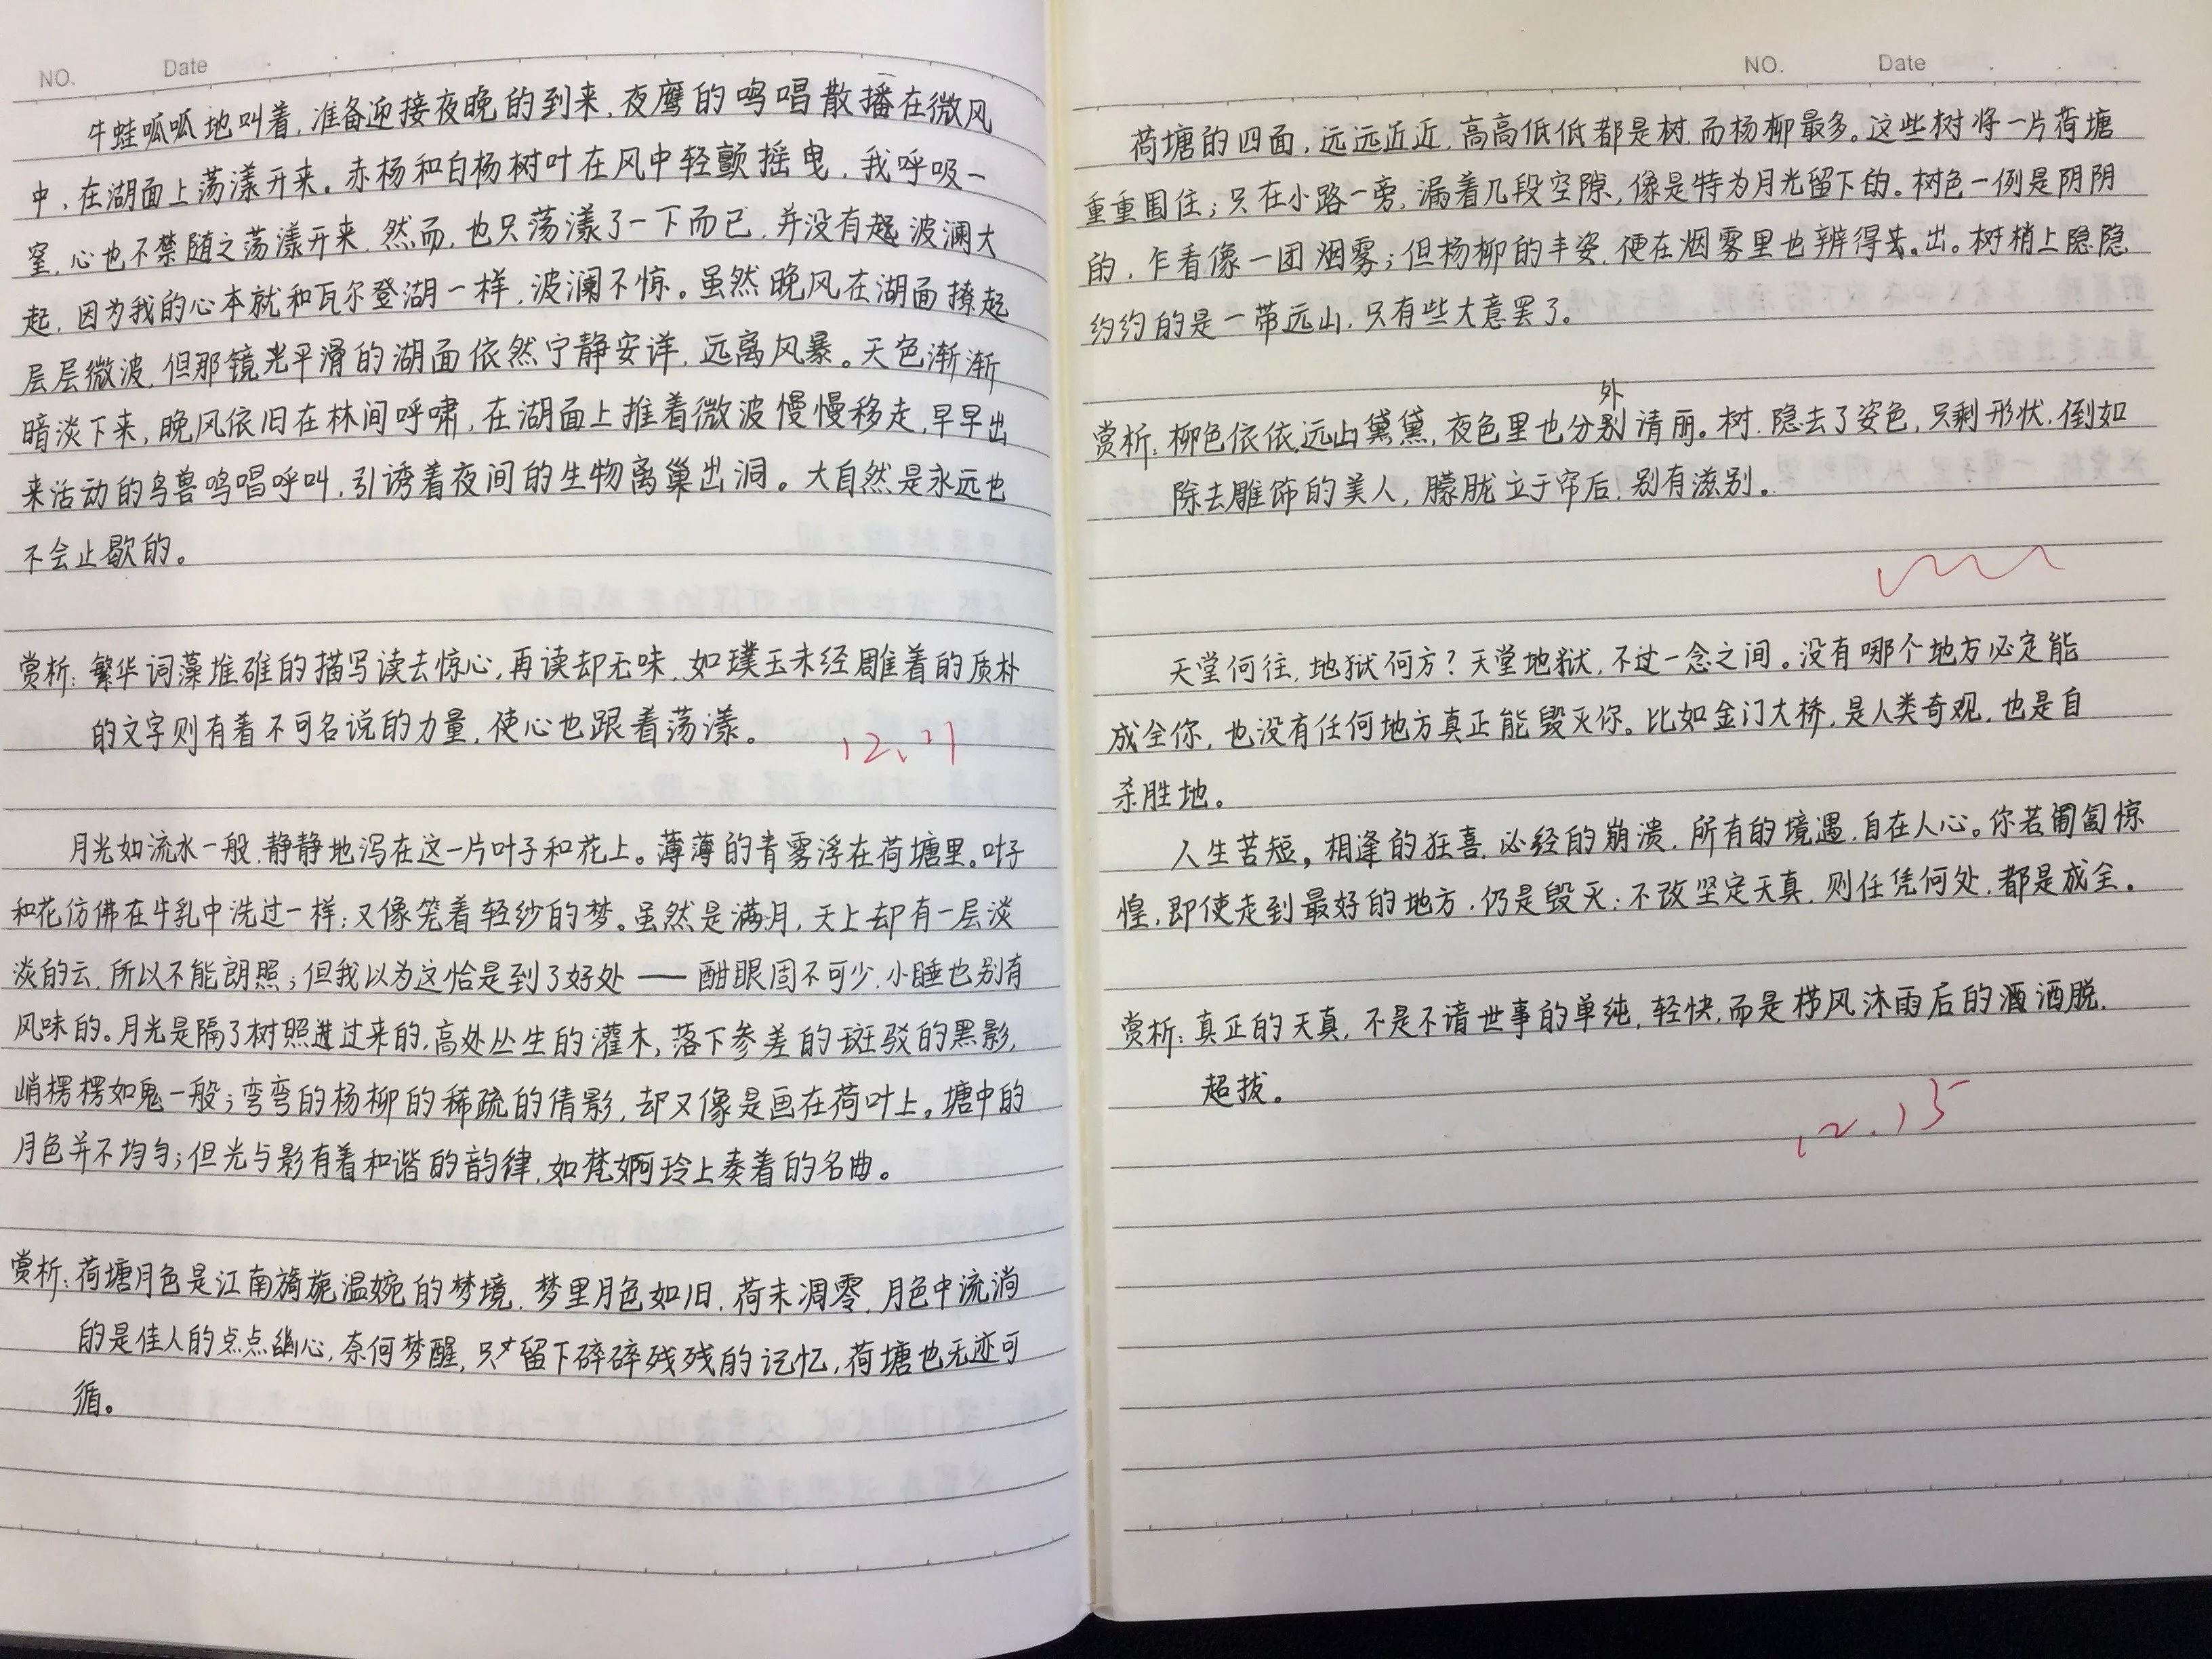 NO. Date
牛蛙呱呱地叫着，准备迎接夜晚的到来，夜鹰的鸣唱散播在微风
中，在湖面上荡漾开来。赤杨和白杨树叶在风中轻颤摇曳，我呼吸一
窒，心也不禁随之荡漾开来，然而，也只荡漾了一下而已，并没有起波澜大
起，因为我的心本就和瓦尔登湖一样，波澜不惊。虽然晚风在湖面撩起
层层微波，但那镜光平滑的湖面依然宁静安详，远离风暴。天色渐渐
暗淡下来，晚风依旧在林间呼啸，在湖面上推着微波慢慢移走，早早出
来活动的鸟兽鸣唱呼叫，引诱着夜间的生物离巢出洞。大自然是永远也
不会止歇的。
赏析：繁华词藻堆碓的描写读去惊心，再读却无味，如璞玉未经雕着的质朴
的文字则有着不可名说的力量，使心也跟着荡漾。
月光如流水一般，静静地泻在这一片叶子和花上。薄薄的青雾浮在荷塘里。叶子
和花仿佛在牛乳中洗过一样；又像笼着轻纱的梦。虽然是满月，天上却有一层淡
淡的云，所以不能朗照；但我以为这恰是到了好处——酣眠固不可少，小睡也别有
风味的。月光是隔了树照进过来的，高处丛生的灌木，落下参差的斑驳的黑影，
峭楞楞如鬼一般；弯弯的杨柳的稀疏的倩影，却又像是画在荷叶上。塘中的
月色并不均匀；但光与影有着和谐的韵律，如梵婀玲上奏着的名曲。
赏析：荷塘月色是江南旖旎温婉的梦境，梦里月色如旧，荷未凋零，月色中流淌
的是佳人的点点幽心，奈何梦醒，只留下碎碎残残的记忆，荷塘也无迹可
循。
NO. Date
荷塘的四面，远远近近，高高低低都是树，而杨柳最多。这些树将一片荷塘
重重围住；只在小路一旁，漏着几段空隙，像是特为月光留下的。树色一例是阴阴
的，乍看像一团烟雾；但杨柳的丰姿，便在烟雾里也辨得出。树梢上隐隐
约约的是一带远山，只有些大意罢了。
外
赏析：柳色依依，远山黛黛，夜色里也分别清丽。树，隐去了姿色，只剩形状，倒如
除去雕饰的美人，朦胧立于帘后，别有滋别。
天堂何往，地狱何方？天堂地狱，不过一念之间。没有哪个地方必定能
成全你，也没有任何地方真正能毁灭你。比如金门大桥，是人类奇观，也是自
杀胜地。
人生苦短，相逢的狂喜，必经的崩溃，所有的境遇，自在人心。你若匍匐惊
惶，即使走到最好的地方，仍是毁灭；不改坚定天真，则任凭何处，都是成全。
赏析：真正的天真，不是不谙世事的单纯，轻快，而是栉风沐雨后的洒脱，
超拔。
12.15